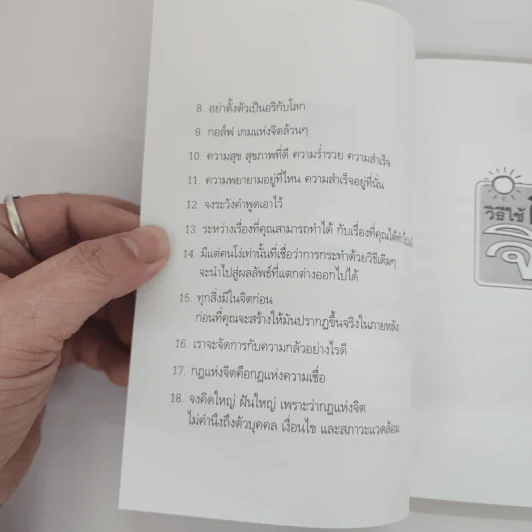 8. อย่าตั้งตัวเป็นอริกับโลก
9. กอล์ฟ เกมแห่งจิตล้วนๆ
10. ความสุข สุขภาพที่ดี ความร่ำรวย ความสำเร็จ
11. ความพยายามอยู่ที่ไหน ความสำเร็จอยู่ที่นั่น
12. จงระวังคำพูดเอาไว้
13. ระหว่างเรื่องที่คุณสามารถทำได้ กับเรื่องที่คุณได้ทำ
14 มีแต่คนโง่เท่านั้นที่เชื่อว่าการกระทำด้วยวิธีเดิมๆ
จะนำไปสู่ผลลัพธ์ที่แตกต่างออกไปได้
15. ทุกสิ่งมีในจิตก่อน
ก่อนที่คุณจะสร้างให้มันปรากฏขึ้นจริงในภายหลัง
16. เราจะจัดการกับความกลัวอย่างไรดี
17. กฎแห่งจิตคือกฎแห่งความเชื่อ
18. จงคิดใหญ่ ฝันใหญ่ เพราะว่ากฎแห่งจิต
ไม่คำนึงถึงตัวบุคคล เงื่อนไข และสภาวะแวดล้อม
วิธีใช้